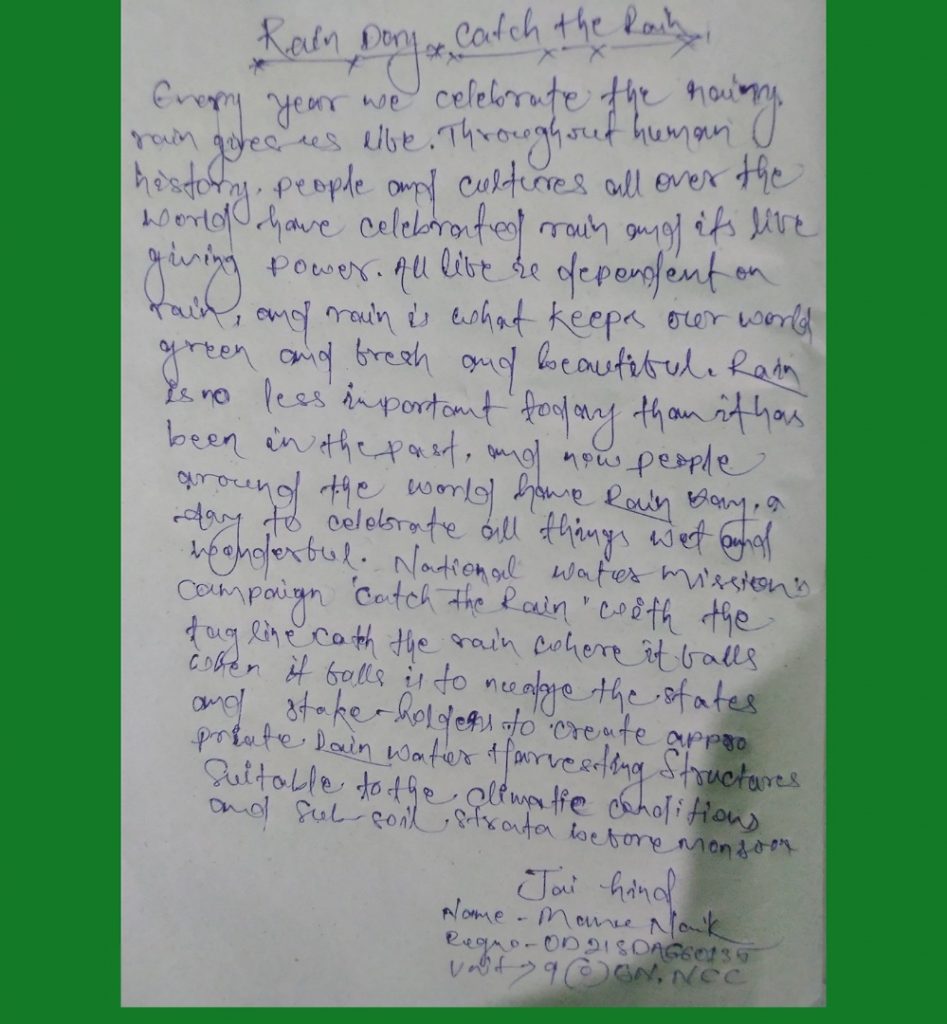 Rain Day Catch the Rain
Every year we celebrate the rainy
rain gives us life. Throughout human
history, people and cultures all over the
world have celebrated rain and its live
giving power. All life is dependent on
rain, and rain is what keeps our world
green and fresh and beautiful. Rain
is no less important today than it has
been in the past, and now people
around the world have Rain Day, a
day to celebrate all things wet and
wonderful. National water mission's
campaign "catch The Rain" with the
tag line cath the rain where it falls
when it falls is to nudge the states
and stake-holders to create appro
priate Rain water Harvesting Structures
Suitable to the climatic conditions
and sub-soil strata before monsoon
Jai hind
Name - Naik
Regno -
Unit → 9 (O) BN. NCC